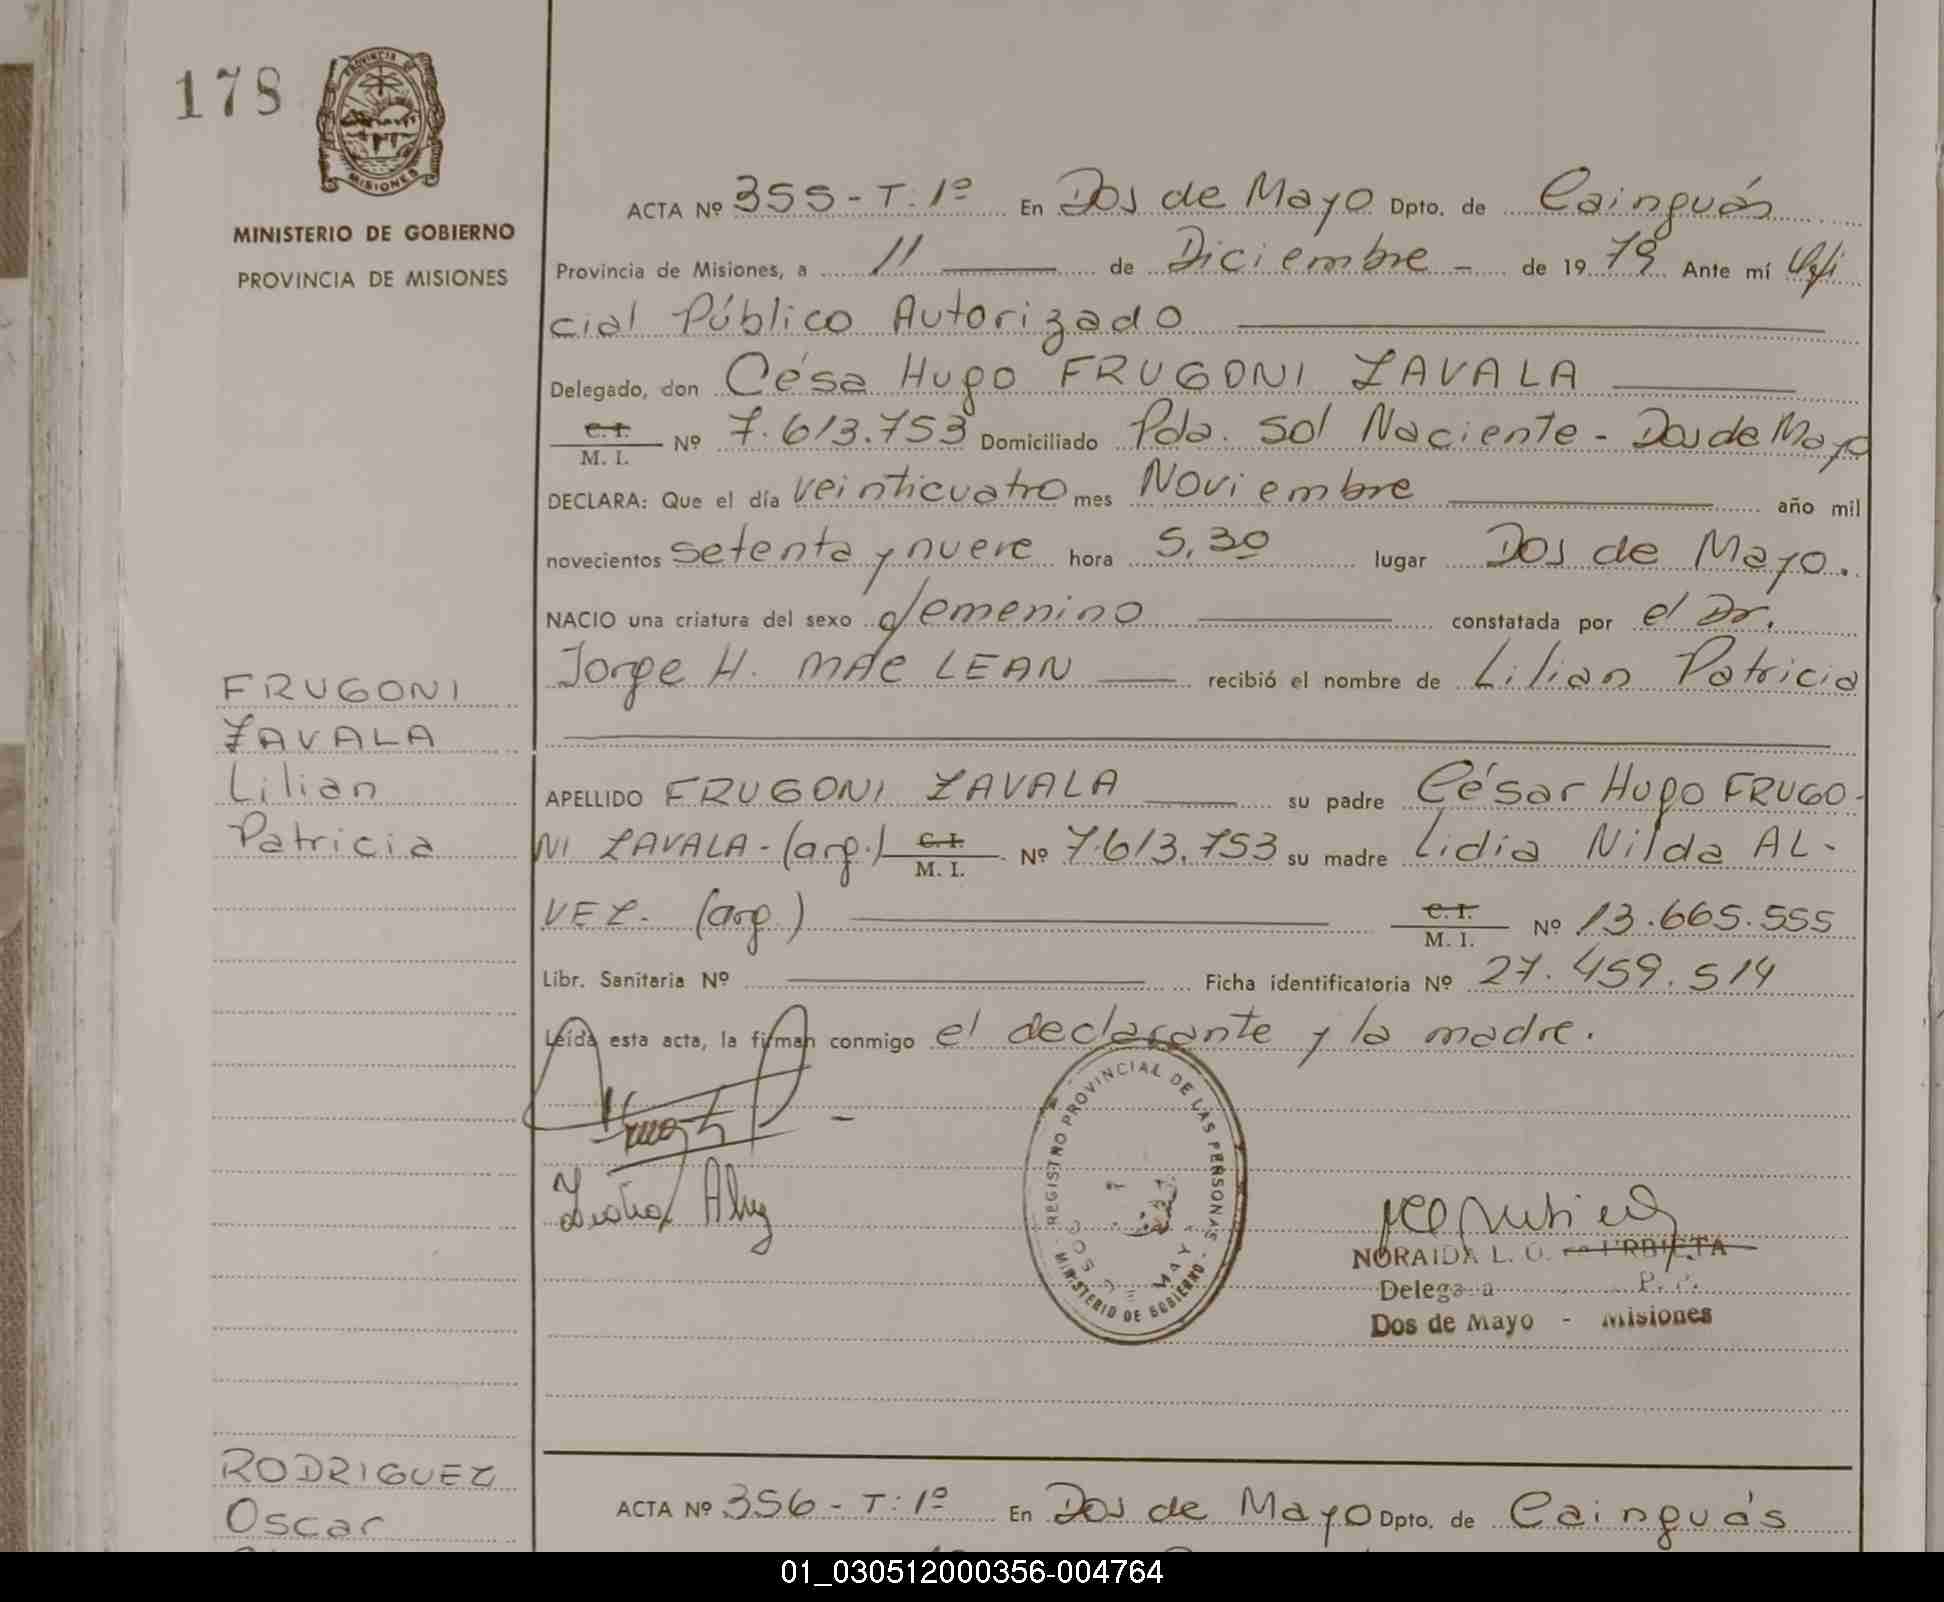 178
PROVINCIA DE
MISIONES
MINISTERIO DE GOBIERNO
PROVINCIA DE MISIONES
ACTA Nº 355-T.1º En Dos de Mayo Dpto. de Cainguás
Provincia de Misiones, a 11 de Diciembre - de 1979 Ante mí Ofi
cial Público Autorizado
Delegado, don Césa Hugo FRUGONI ZAVALA
C. I.
M. I. Nº 7.613.753 Domiciliado Pda. Sol Naciente - Dos de Mayo
DECLARA: Que el día veinticuatro mes Noviembre año mil
novecientos setenta y nueve hora 5,30 lugar Dos de Mayo.
NACIO una criatura del sexo femenino constatada por el Dr.
Jorge H. MAC LEAN recibió el nombre de Lilian Patricia
FRUGONI
ZAVALA
Lilian
Patricia
APELLIDO FRUGONI ZAVALA su padre César Hugo FRUGO-
NI ZAVALA-(arg.) C. I. M. I. Nº 7.613.753 su madre Lidia Nilda AL-
VEZ. (arg.) C. I. M. I. Nº 13.665.555
Libr. Sanitaria Nº Ficha identificatoria Nº 27.459.514
Leída esta acta, la firman conmigo el declarante y la madre.
REGISTRO PROVINCIAL DE LAS PERSONAS
MINISTERIO DE GOBIERNO
NORAIDA L. O. de URBIETA
Delegada R. P. P.
Dos de Mayo - Misiones
RODRIGUEZ
Oscar
ACTA Nº 356-T:1º En Dos de Mayo Dpto. de Cainguás
01_030512000356-004764